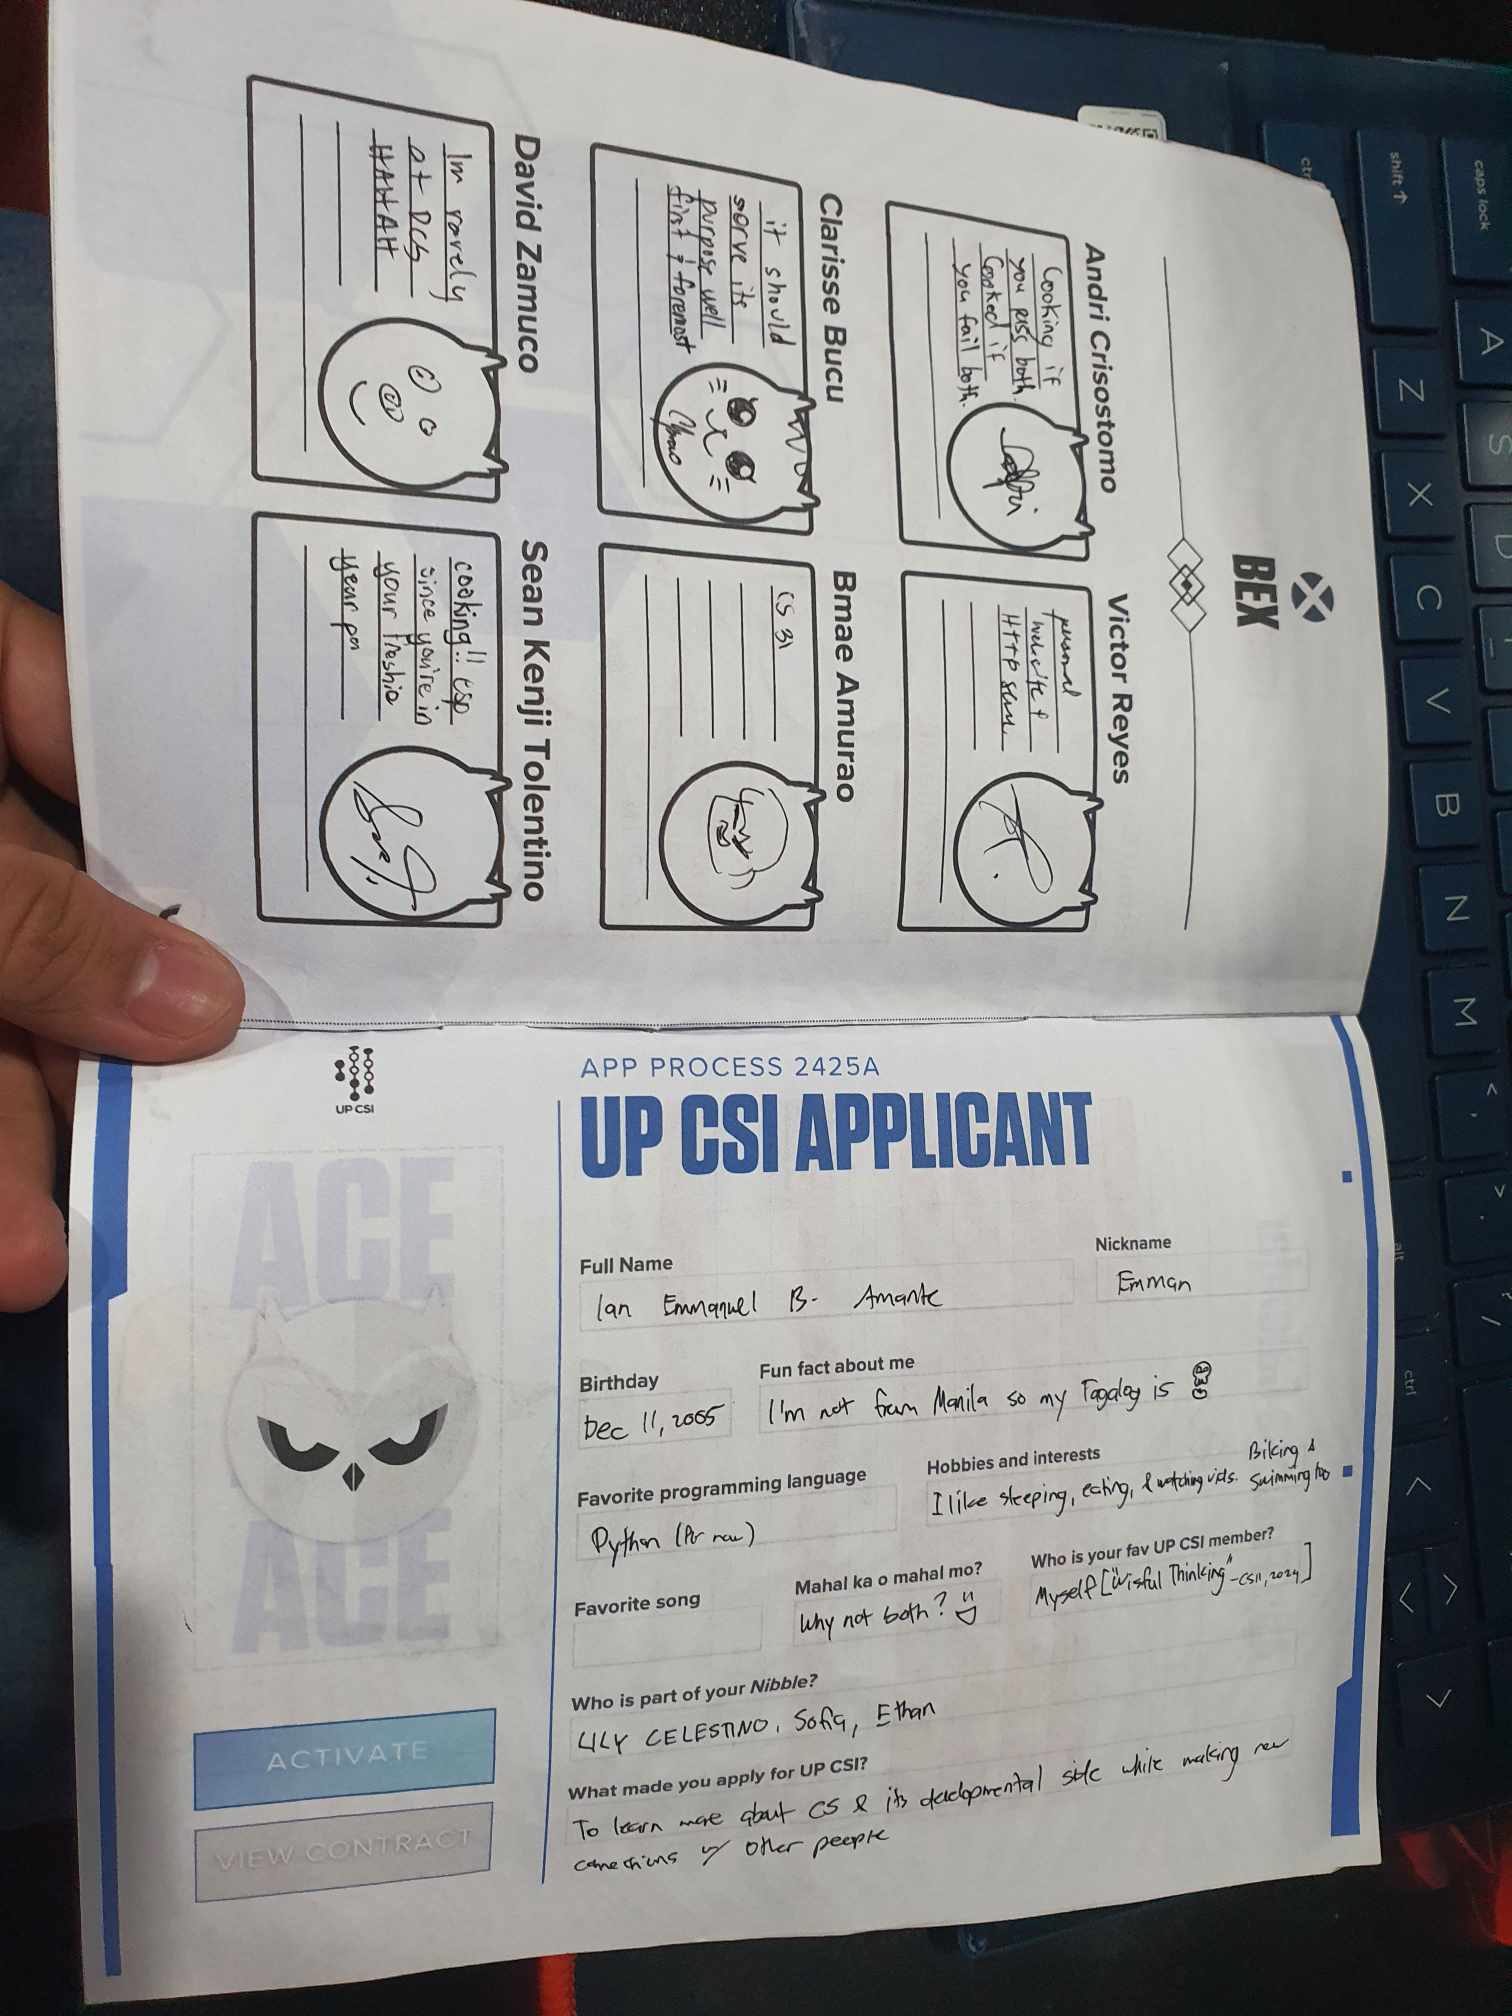 caps lock
A
S
D
shift
Z
X
C
V
B
N
M
<
,
>
.
/
alt
ctrl
<
>
BEX
Andri Crisostomo
Cooking if
you pass both.
Cooked if
you fail both.
Victor Reyes
personal
website +
HTTP
Clarisse Bucu
it should
serve its
purpose well
first & foremost
Bmae Amurao
CS 31
David Zamuco
Im rarely
at DCS
HAHAH
Sean Kenji Tolentino
cooking!! esp
since you're in
your freshie
year pa
APP PROCESS 2425A
UP CSI APPLICANT
Full Name
Ian Emmanuel B. Amante
Nickname
Emman
Birthday
Dec 11, 2005
Fun fact about me
I'm not from Manila so my Tagalog is
Favorite programming language
Python (for now)
Hobbies and interests
I like sleeping, eating, & watching vids. Biking &
swimming too
Favorite song
Mahal ka o mahal mo?
Why not both?
Who is your fav UP CSI member?
Myself ["Wishful Thinking" - CS11, 2024]
Who is part of your Nibble?
LILY CELESTINO, Sofia, Ethan
What made you apply for UP CSI?
To learn more about CS & its developmental side while making new
connections w/ other people
UP CSI
ACE
ACE
ACTIVATE
VIEW CONTRACT